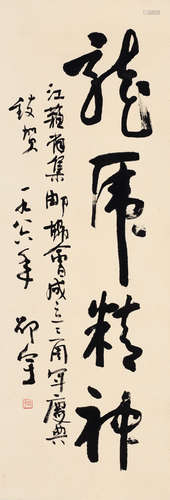 龍虎精神
江蘇省集郵協會成立三周年慶典
致賀 一九八六年 邵宇